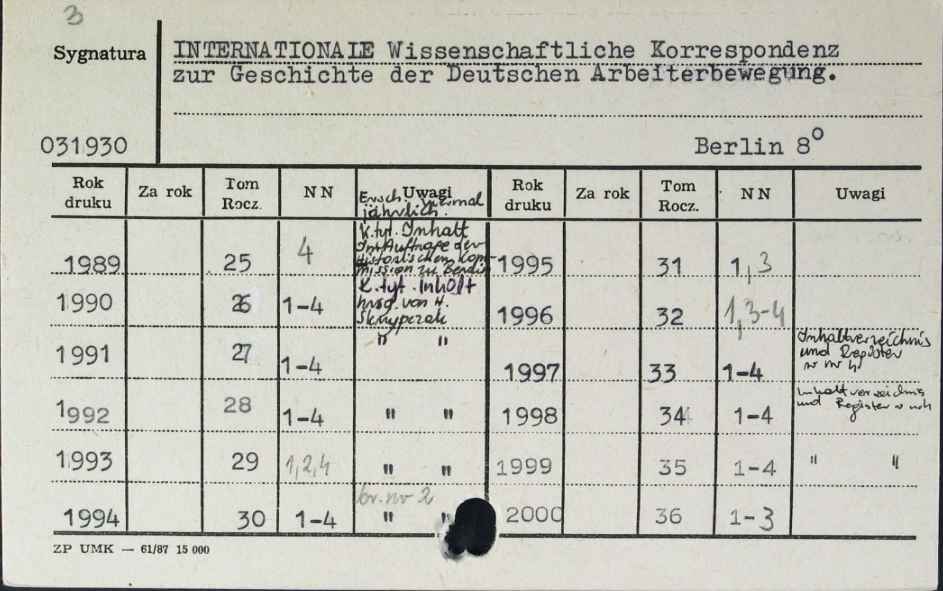 3
Sygnatura INTERNATIONALE Wissenschaftliche Korrespondenz
zur Geschichte der Deutschen Arbeiterbewegung.
031930 Berlin 8°
Rok druku Za rok Tom Rocz. NN Uwagi Rok druku Za rok Tom Rocz. NN Uwagi
Ersch. viermal
jährlich.
K. tyt. Inhalt
Im Auftrage der
Historischen Kom-
mission zu Berlin
1989 25 4 1995 31 1,3
K. tyt. Inhalt
hrsg. von H.
1990 26 1-4 1996 32 1,3-4
Inhaltverzeichnis
und Register
w nr 4
1991 27 1-4 " " 1997 33 1-4
Inhaltverzeichnis
und Register w nr 4
1992 28 1-4 " " 1998 34 1-4
1993 29 1,2,4 " " 1999 35 1-4 " "
br. nr 2
1994 30 1-4 " " 2000 36 1-3
ZP UMK — 61/87 15 000